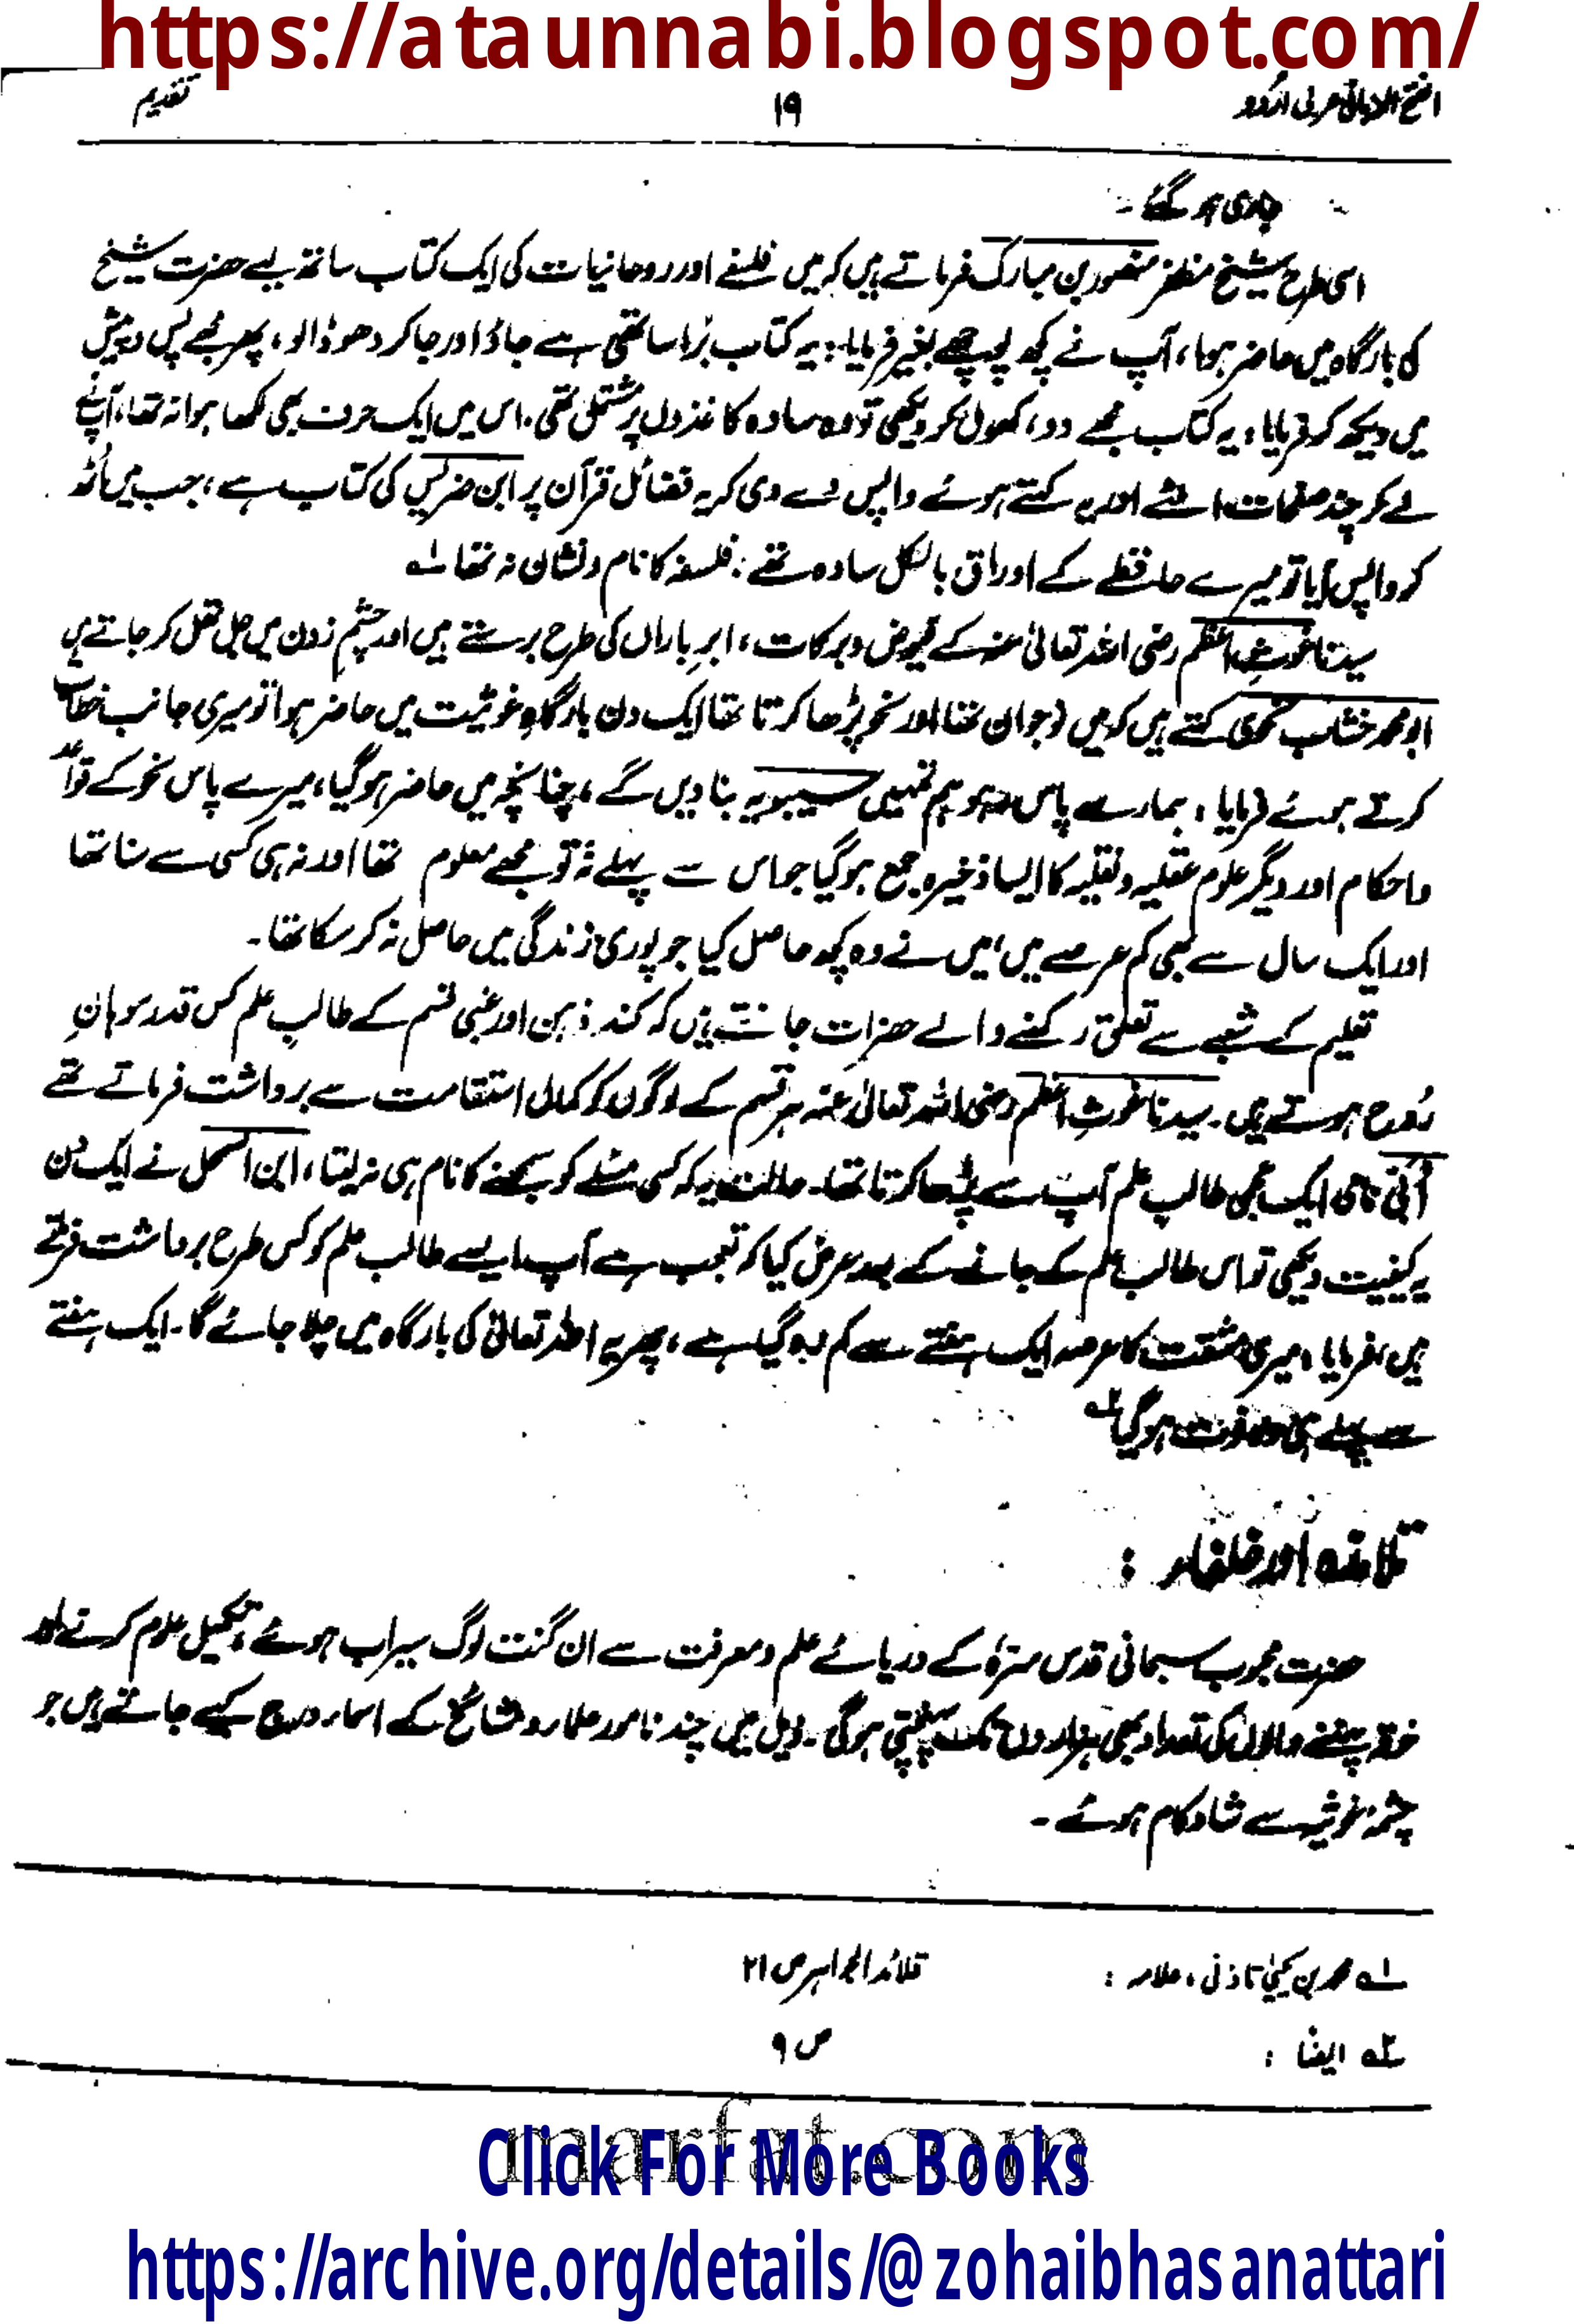 https://ataunnabi.blogspot.com/
الفتح الربانی عربی اردو ۱۹ تقدیم
جاری ہو گئے۔
اسی طرح شیخ مظفر منصور بن مبارک فرماتے ہیں کہ میں فلسفے اور روحانیات کی ایک کتاب ساتھ لیے حضرت شیخ
کی بارگاہ میں حاضر ہوا، آپ نے کچھ پوچھے بغیر فرمایا: یہ کتاب بُرا ساتھی ہے جاؤ اور جا کر دھو ڈالو، پھر مجھے پس و پیش
میں دیکھ کر فرمایا، یہ کتاب مجھے دو، کھول کر دیکھی تو وہ سادہ کاغذوں پر مشتمل تھی۔ اس میں ایک حرف بھی لکھا ہوا نہ تھا، آپ نے
لے کر چند صفحات الٹے اور یہ کہتے ہوئے واپس دے دی کہ یہ فضائل قرآن پر ابن ضریس کی کتاب ہے، جب میں اُٹھ
کر واپس آیا تو میرے حافظے کے اوراق بالکل سادہ تھے: فلسفہ کا نام و نشان نہ تھا ۱؎
سیدنا غوثِ اعظم رضی اللہ تعالیٰ عنہ کے فیوض و برکات، ابرِ باراں کی طرح برستے ہیں اور چشمِ زدن میں جل تھل کر جاتے ہیں
ابو محمد خشاب نحوی کہتے ہیں کہ میں نوجوان تھا اور نحو پڑھا کرتا تھا ایک دن بارگاہِ غوثیت میں حاضر ہوا تو میری جانب خطاب
کرتے ہوئے فرمایا، ہمارے پاس رہو ہم تمہیں سیبویہ بنا دیں گے، چنانچہ میں حاضر ہو گیا، میرے پاس نحو کے قواعد
و احکام اور دیگر علوم عقلیہ و نقلیہ کا ایسا ذخیرہ جمع ہو گیا جو اس سے پہلے نہ تو مجھے معلوم تھا اور نہ ہی کسی سے سنا تھا
اور ایک سال سے بھی کم عرصے میں، میں نے وہ کچھ حاصل کیا جو پوری زندگی میں حاصل نہ کر سکا تھا۔
تعلیم کے شعبے سے تعلق رکھنے والے حضرات جانتے ہیں کہ کند ذہن اور غبی قسم کے طالبِ علم کس قدر سوہانِ
رُوح ہوتے ہیں۔ سیدنا غوثِ اعظم رضی اللہ تعالیٰ عنہ ہر قسم کے لوگوں کو کمال استقامت سے برداشت فرماتے تھے
اُبَی نامی ایک عجمی طالب علم آپ سے پڑھا کرتا تھا۔ حالت یہ کہ کسی مسئلے کو سمجھنے کا نام ہی نہ لیتا، ابن السمحل نے ایک دن
یہ کیفیت دیکھی تو اس طالب علم کے جانے کے بعد عرض کیا کہ تعجب ہے آپ ایسے طالب علم کو کس طرح برداشت فرماتے
ہیں، فرمایا، میری مشقت کا عرصہ ایک ہفتے سے کم رہ گیا ہے، پھر یہ اللہ تعالیٰ کی بارگاہ میں چلا جائے گا۔ ایک ہفتے
سے پہلے ہی وہ فوت ہو گیا ۲؎
تلامذہ اور خلفاء :
حضرت محبوب سبحانی قدس سرّہ کے دریائے علم و معرفت سے ان گنت لوگ سیراب ہوئے، تکمیل علوم کرنے اور
خرقہ پہننے والوں کی تعداد بھی ہزاروں تک پہنچتی ہوگی۔ ذیل میں چند نامور علماء و مشائخ کے اسماء درج کیے جاتے ہیں جو
چشمۂ غوثیہ سے شاد کام ہوئے۔
۱؎ محمد بن یحییٰ تاذفی، علامہ : قلائد الجواہر ص ۲۱
۲؎ ایضا : ص ۹
marfat.com
Click For More Books
https://archive.org/details/@zohaibhasanattari